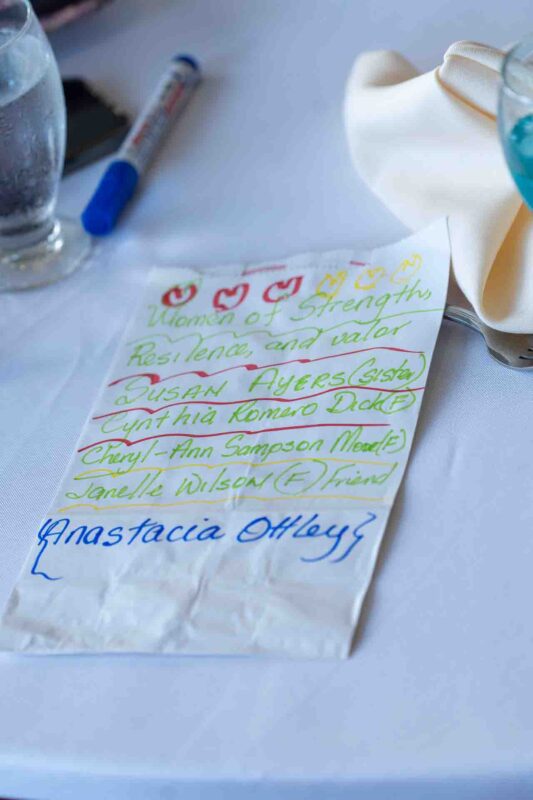 Women of Strength,
Resilence, and valor
SUSAN AYERS (sister)
Cynthia Romero Dick (F)
Cheryl-Ann Sampson Moe (F)
Janelle WILSON (F) Friend
{Anastacia Ottley}